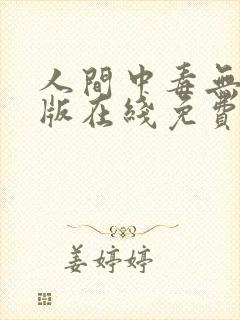 人間中毒無
版在綫免費
姜婷婷